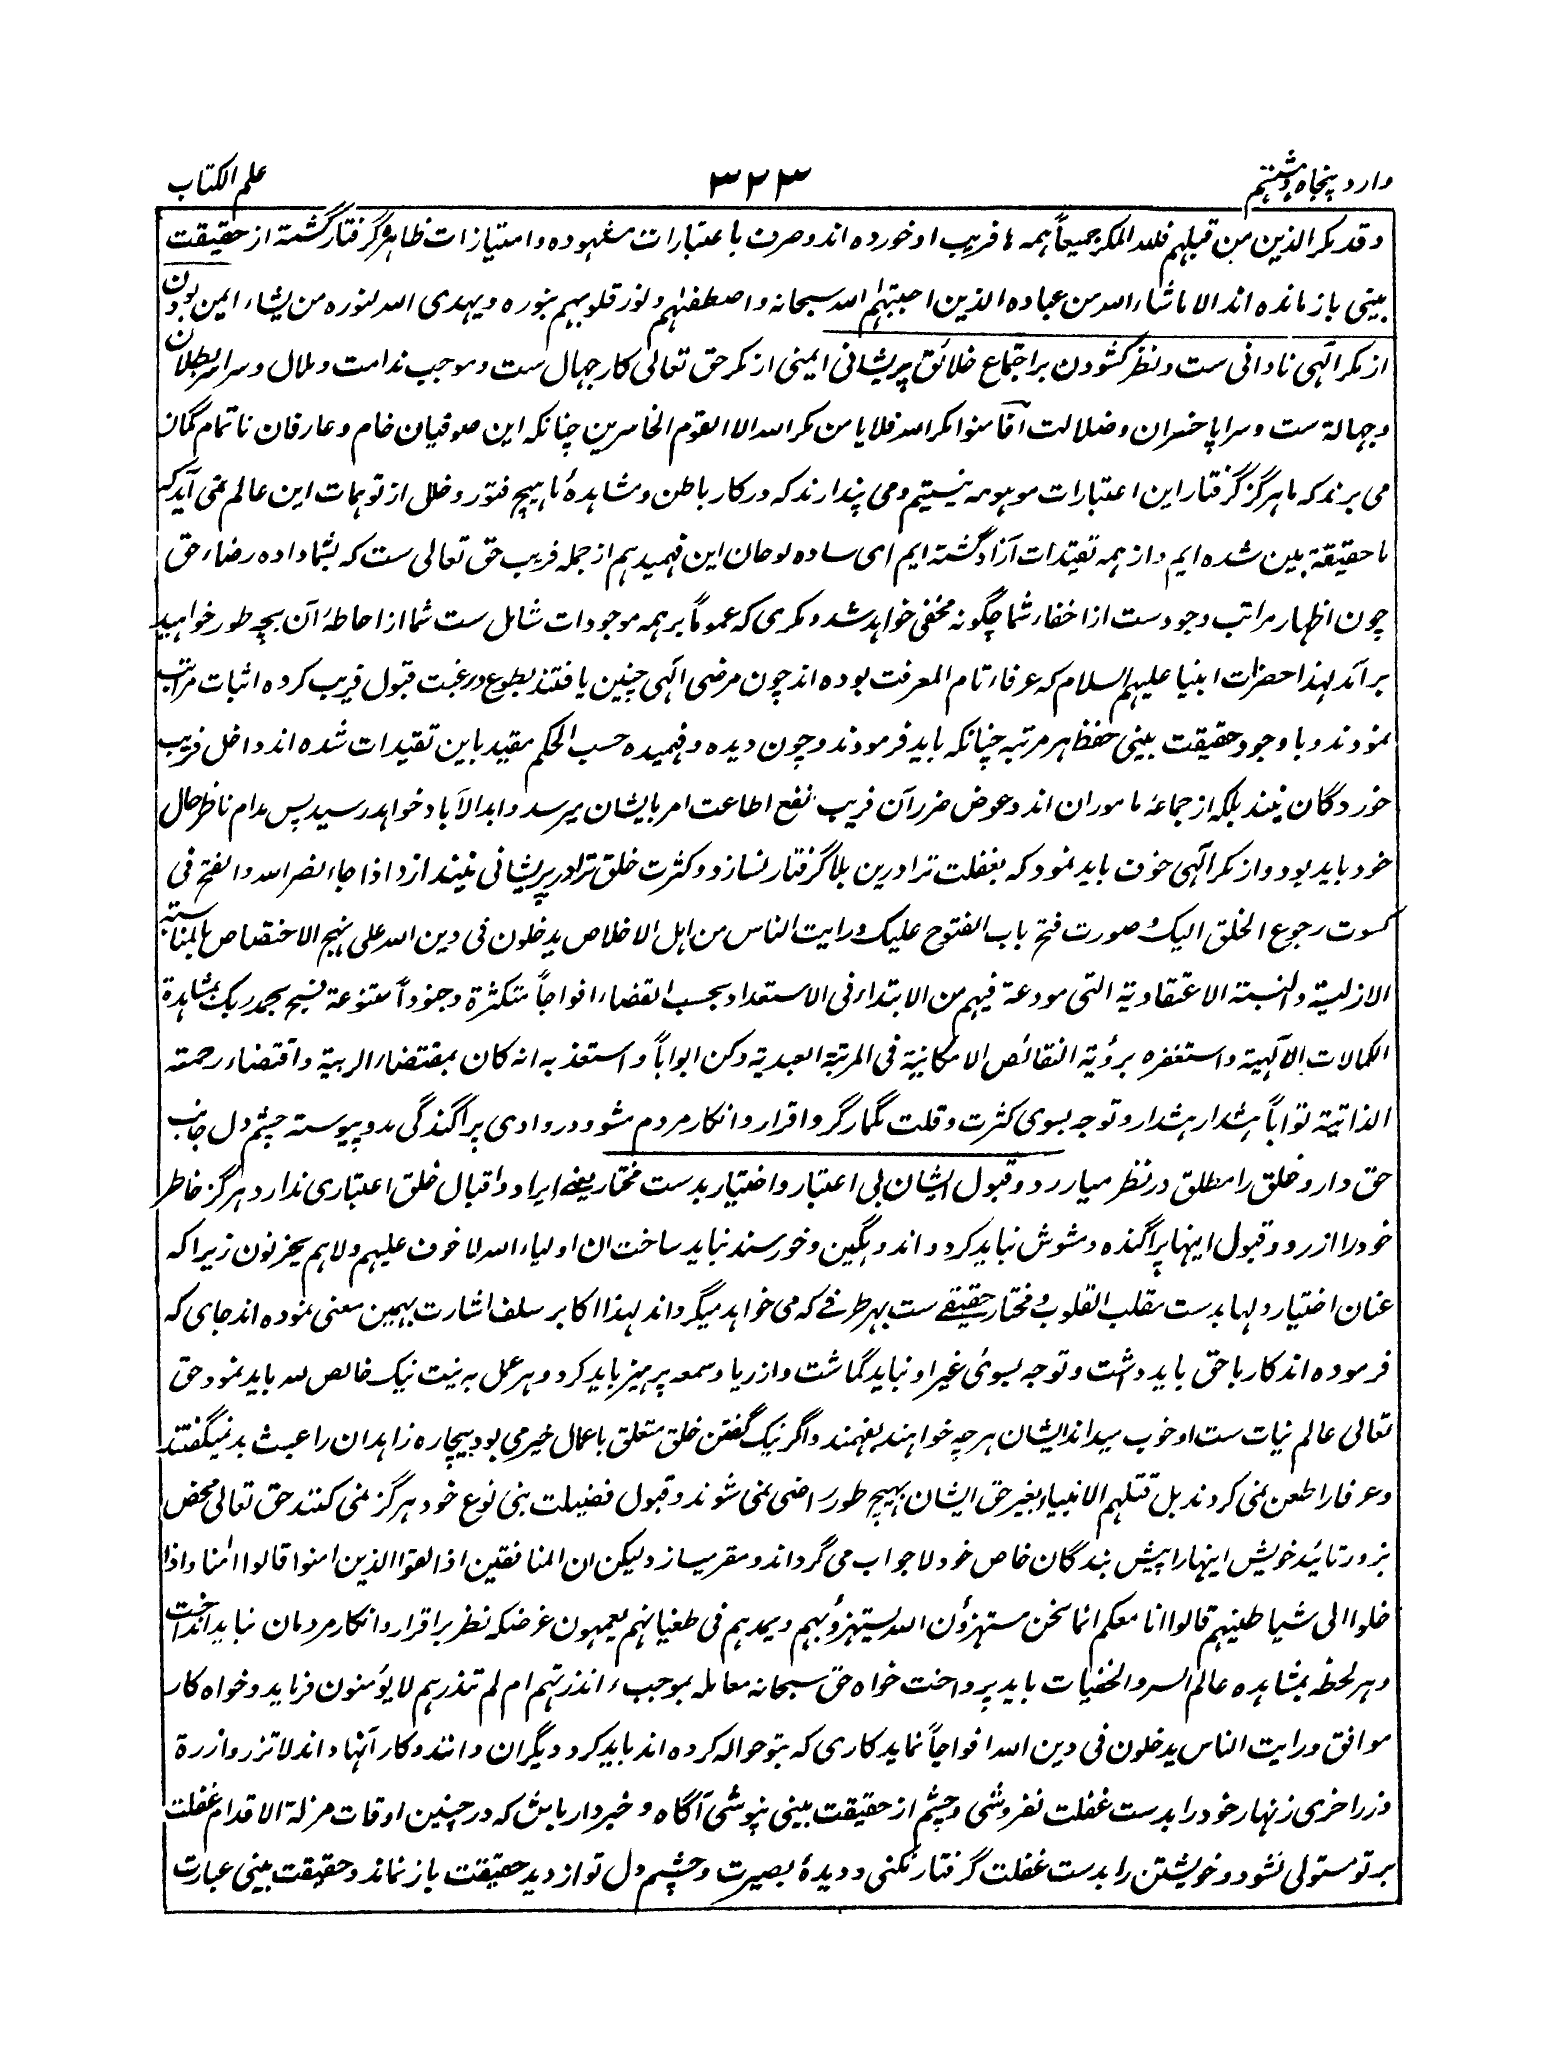 وارد پنجاه و هشتم
۳۲۳
علم الکتاب
و قد مکر الذین من قبلهم فلله المکر جمیعاً همه ها فریب او خورده اند و صرف با عتبارات مشهوده و امتیازات ظاهره گرفتار گشته از حقیقت
بینی باز مانده اند الا ما شاء الله من عباده الذین اجتبٰهم الله سبحانه و اصطفٰهم و نور قلوبهم بنوره و یهدی الله لنوره من یشاء ایمن بودن
از مکر الٰهی نادانی ست و نظر کشودن بر اجتماع خلائق پریشانی ایمنی از مکر حق تعالی کار جهال ست و موجب ندامت و ملال و سراسر بطلان
و جهالة ست و سراپا خسران و ضلالت افامنوا مکر الله فلا یامن مکر الله الا القوم الخاسرین چنانکه این صوفیان خام و عارفان ناتمام گمان
می برند که ما هرگز گرفتار این اعتبارات موهومه نیستیم و می پندارند که در کار باطن و مشاهدۀ ما هیچ فتور و خلل از توهمات این عالم نمی آید که
ما حقیقة بین شده ایم و از همه تقیدات آزاد گشته ایم ای ساده لوحان این فهمید هم از جمله فریب حق تعالی ست که بشما داده رضاء حق
چون اظهار مراتب وجود ست از اخفاء شما چگونه مخفی خواهد شد و مکری که عموماً بر همه موجودات شامل ست شما از احاطۀ آن بچه طور خواهید
بر آمد لهذا حضرات انبیا علیهم السلام که عرفاء تام المعرفت بوده اند چون مرضی الٰهی چنین یافتند بطوع و رغبت قبول فریب کرده اثبات مراتب
نمودند و با وجود حقیقت بینی حفظ هر مرتبه چنانکه باید فرمودند و چون دیده و فهمیده حسب الحکم مقید باین تقیدات شده اند داخل فریب
خوردگان نیند بلکه از جماعۀ ماموران اند و عوض ضرر آن فریب نفع اطاعت امر بایشان میرسد و ابد الآباد خواهد رسید پس مدام ناظر حال
خود باید بود و از مکر الٰهی خوف باید نمود که بغفلت ترا درین بلا گرفتار نسازد و کثرت خلق ترا در پریشانی نیندازد اذا جاء نصر الله و الفتح فی
کسوت رجوع الخلق الیک و صورت فتح باب الفتوح علیک و رایت الناس من اهل الاخلاص یدخلون فی دین الله علی نهج الاختصاص بالمناسبة
الازلیة و النسبة الاعتقادیة التی مودعة فیهم من الابتداء فی الاستعداد بحسب القضاء افواجاً متکثرة و جنوداً متنوعة فسبح بحمد ربک بمشاهدة
الکمالات الآلهیة و استغفره برؤیة النقائص الامکانیة فی المرتبة العبدیة و کن ابواباً و استعذ به انه کان بمقتضاء الربیة و اقتضاء رحمته
الذاتیة تواباً هشدار هشدار و توجه بسوی کثرت و قلت مگمار گرو اقرار و انکار مردم مشو و در وادی پراگندگی مدو پیوسته چشم دل جانب
حق دار و خلق را مطلق در نظر میار رد و قبول ایشان بی اعتبار و اختیار بدست مختار یعنی ایراد و اقبال خلق اعتباری ندارد هرگز خاطر
خود را از رد و قبول اینها پراگنده و مشوش نباید کرد و اندوهگین و خورسند نباید ساخت ان اولیاء الله لا خوف علیهم ولا هم یحزنون زیرا که
عنان اختیار دلها بدست مقلب القلوب و مختار حقیقے ست بهر طرفے که می خواهد میگرداند لهذا اکابر سلف اشارت بهمین معنی نموده اند جای که
فرموده اند کار با حق باید داشت و توجه بسوئی غیر او نباید گماشت و از ریا و سمعه پرهیز باید کرد و هر عمل به نیت نیک خالص لله باید نمود حق
تعالی عالم نیات ست او خوب میداند ایشان هر چه خواهند بفهمند و اگر نیک گفتن خلق متعلق باعمال خیر می بود بیچاره زاهدان را عبث بد نمیگفتند
و عرفا را طعن نمی کردند بل قتلهم الانبیاء بغیر حق ایشان بهیچ طور راضی نمی شوند و قبول فضیلت بنی نوع خود هرگز نمی کنند حق تعالی محض
بزور تائید خویش اینها را پیش بندگان خاص خود لاجواب می گرداند و مقر میسازد ولیکن ان المنافقین اذا لقوا الذین امنوا قالوا اٰمنا و اذا
خلوا الی شیاطینهم قالوا انا معکم انما نحن مستهزؤن الله یستهزؤ بهم و یمدهم فی طغیانهم یعمهون غرضکه نظر بر اقرار و انکار مردمان نباید انداخت
و هر لحظه بمشاهده عالم السر و الخفیات باید پرداخت خواه حق سبحانه معامله بموجب ء انذرتهم ام لم تنذرهم لا یؤمنون فرماید و خواه کار
موافق و رایت الناس یدخلون فی دین الله افواجاً نماید کاری که بتو حواله کرده اند باید کرد و دیگران دانند و کار آنها داند لا تزر وازرة
وزر اخری زنهار خود را بدست غفلت نفروشی و چشم از حقیقت بینی نپوشی آگاه و خبردار باش که در چنین اوقات مزلة الاقدام غفلت
بر تو مستولی نشود و خویشتن را بدست غفلت گرفتار نکنی و دیدۀ بصیرت و چشم دل تو از دید حقیقت باز نماند و حقیقت بینی عبارت